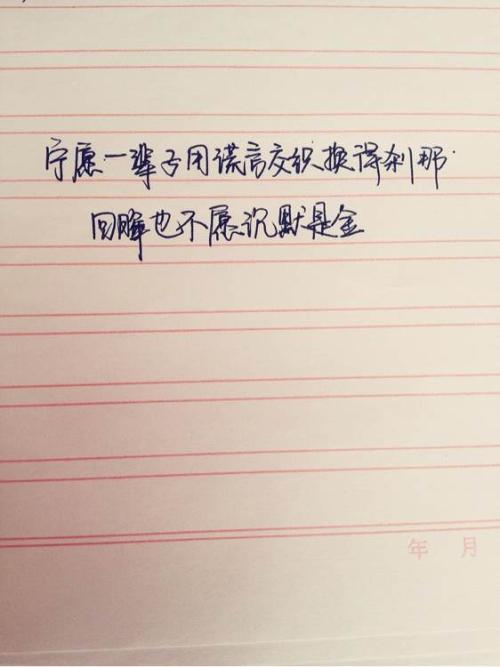 宁愿一辈子用谎言交织换得刹那
回晖也不愿沉默是金
年 月